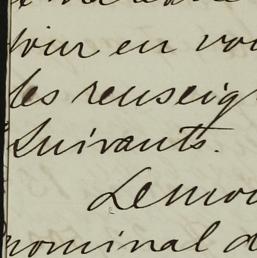 en vou
les renseig
suivants.
Lemou
nominal d